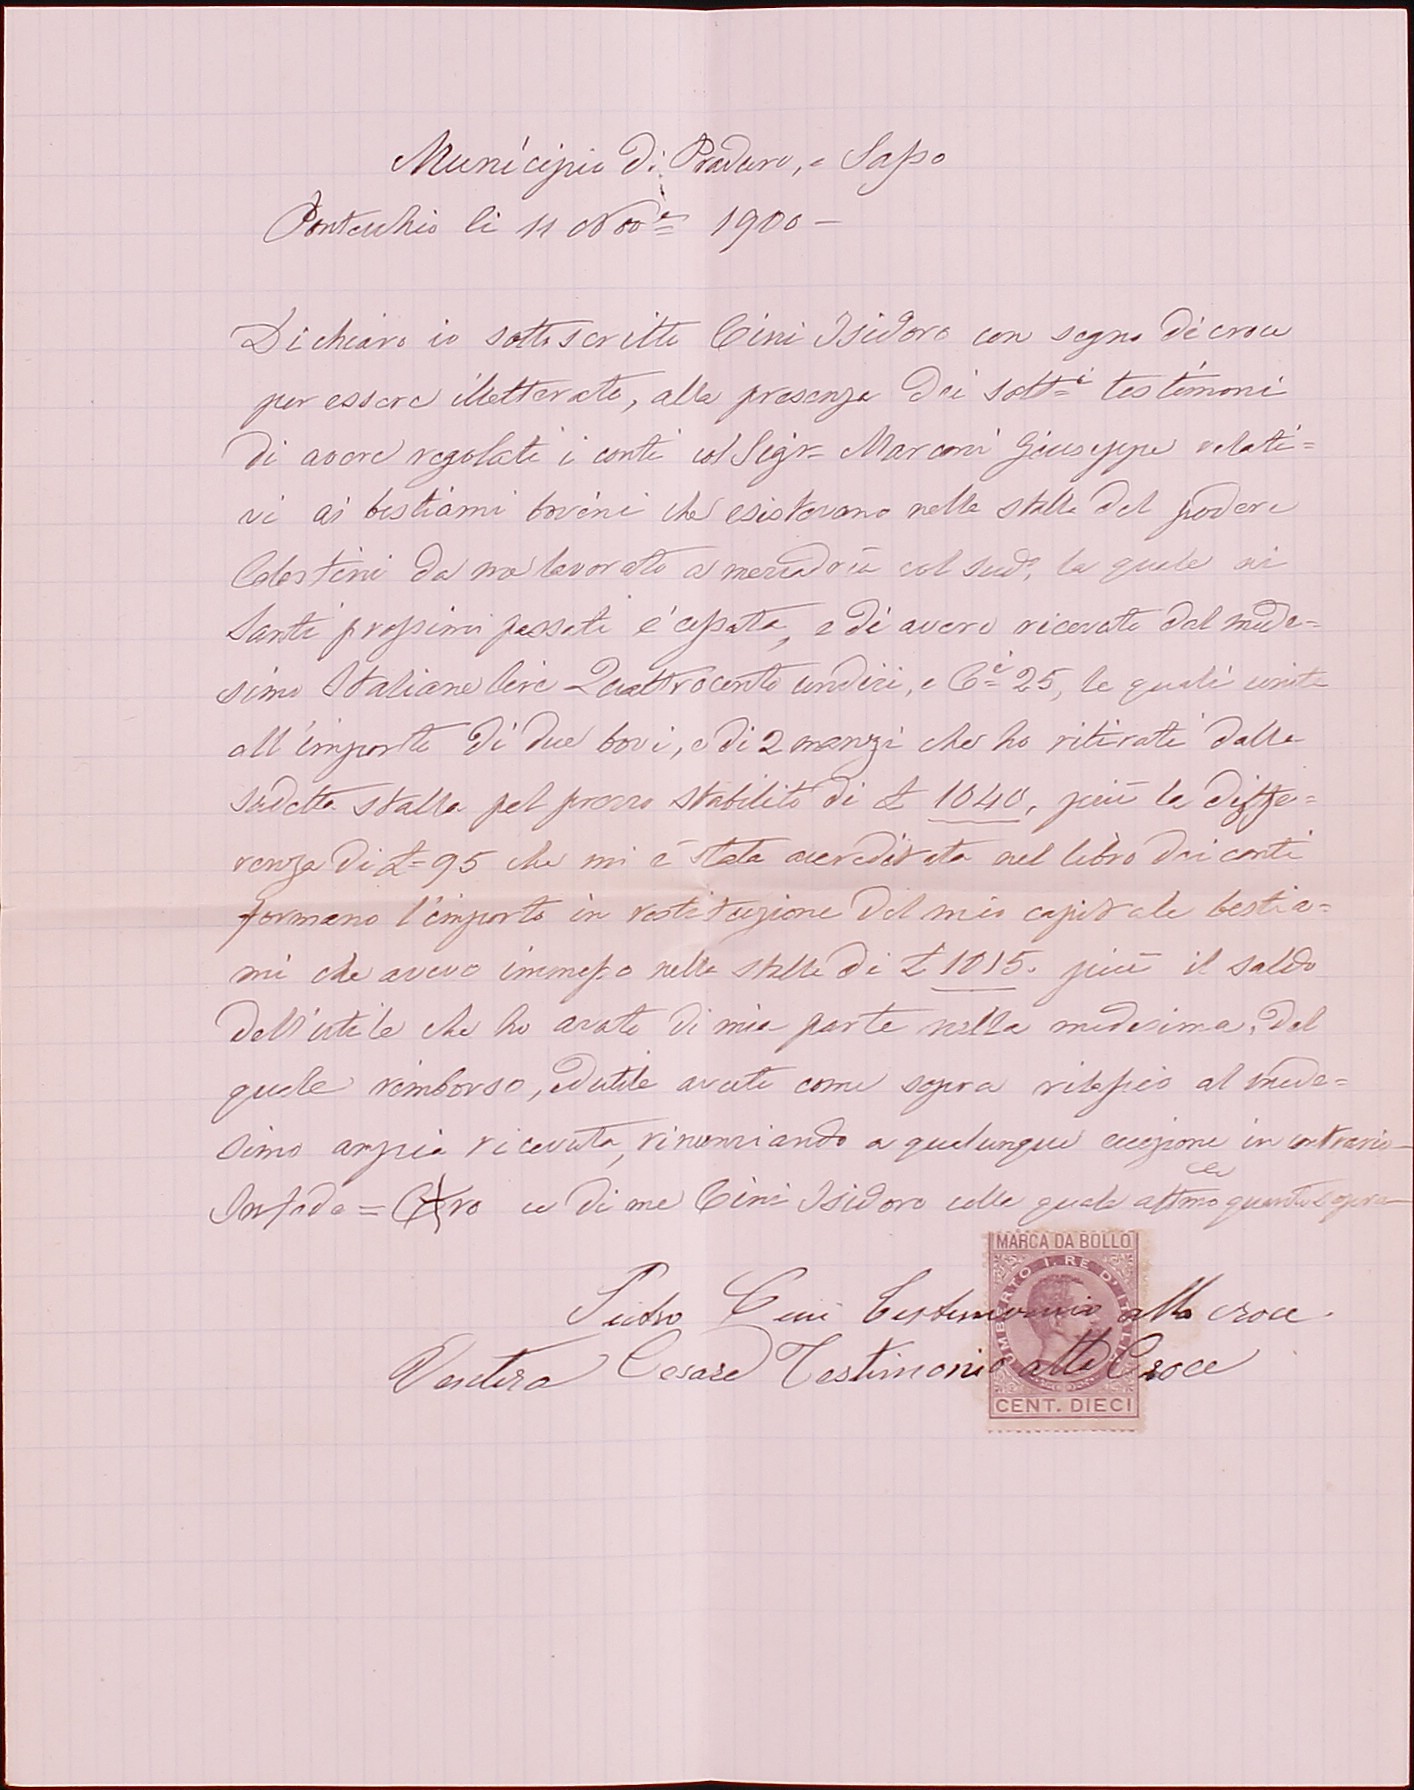 Municipio di Praduro, e Sasso
Pontecchio li 11 Nov.e 1900 –
Dichiaro io sottoscritto Cini Isidoro con segno di croce
per essere illetterato, alla presenza dei sott.i testimoni
di avere regolati i conti col Sig.r Marconi Giuseppe relati=
vi ai bestiami bovini che esistevano nella stalla del podere
Celestini da me lavorato a mezzadria col sud.o la quale ai
Santi prossimi passati è cessata, e di avere ricevute dal mede=
simo Italiane lire Quattrocento undici, e C.i 25, le quali unite
all'importo di due bovi, e di 2 manzi che ho ritirati dalla
sudetta stalla pel prezzo stabilito di £ 1040, più la diffe=
renza di £ 95 che mi è stata accreditata nel libro dei conti
formano l'importo in restituzione del mio capitale bestia=
mi che avevo immesso nella stalla di £ 1015. più il saldo
dell'utile che ho avuto di mia parte nella medesima, del
quale rimborso, ed utile avuti come sopra rilascio al mede=
simo ampia ricevuta, rinunziando a qualunque eccezione in contrario –
In fede = C+ro ce di me Cini Isidoro colla quale affermo quanto sopra –
MARCA DA BOLLO
UMBERTO I. RE D'ITALIA
Pietro Cini testimonio alla croce.
Ventura Cesare Testimonio alla Croce
CENT. DIECI